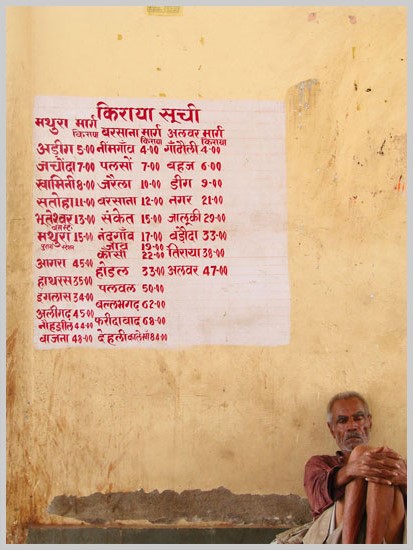 किराया सूची
मथुरा मार्ग किराया
अडीग 5-00
जचौंदा 7-00
स्वामिनी 8-00
सतोहा 11-00
भूतेश्वर 13-00
मथुरा 15-00
आगरा 45-00
हाथरस 35-00
इगलास 34-00
अलीगढ 45-00
नोहझील 44-00
बाजना 48-00
बरसाना मार्ग किराया
नीमगाँव 4-00
पलसों 7-00
बरसाना 12-00
संकेत 15-00
नंदगाँव 17-00
जाव 19-00
कौसी 22-00
होडल 33-00
पलवल 50-00
बल्लभगढ 62-00
फरीदाबाद 68-00
देहली 84-00
अलवर मार्ग किराया
गाँठौली 4-00
बहज 6-00
डीग 9-00
नगर 21-00
जालूकी 29-00
बड़ौदा 33-00
तिराया 38-00
अलवर 47-00